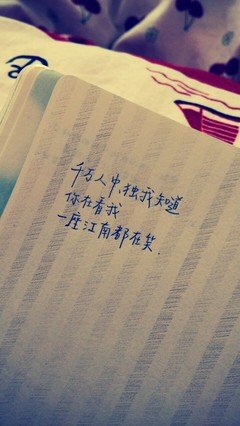 千万人中,独我知道
你在看我
一座江南都在笑.